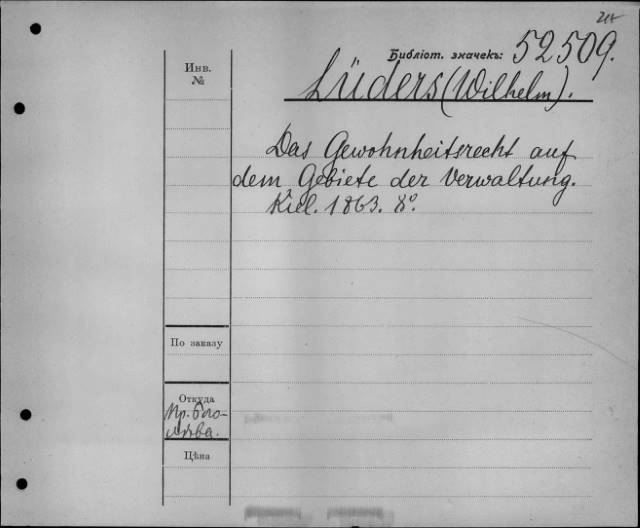 Библіот. значекъ: 52509.
Инв.
№
Lüders (Wilhelm).
Das Gewohnheitsrecht auf
dem Gebiete der Verwaltung.
Kiel. 1863. 8°.
По заказу
Откуда
Цѣна